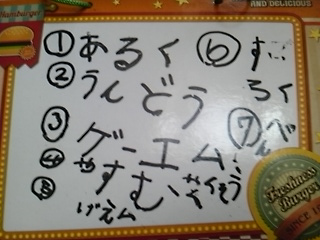 Hamburger
AND DELICIOUS
① あるく
② うんどう
③ ゲーエム
④ やすむ
⑤
げえム
⑥ すご
ろく
⑦ べ
ん
Freshness
Burger
SINCE 19